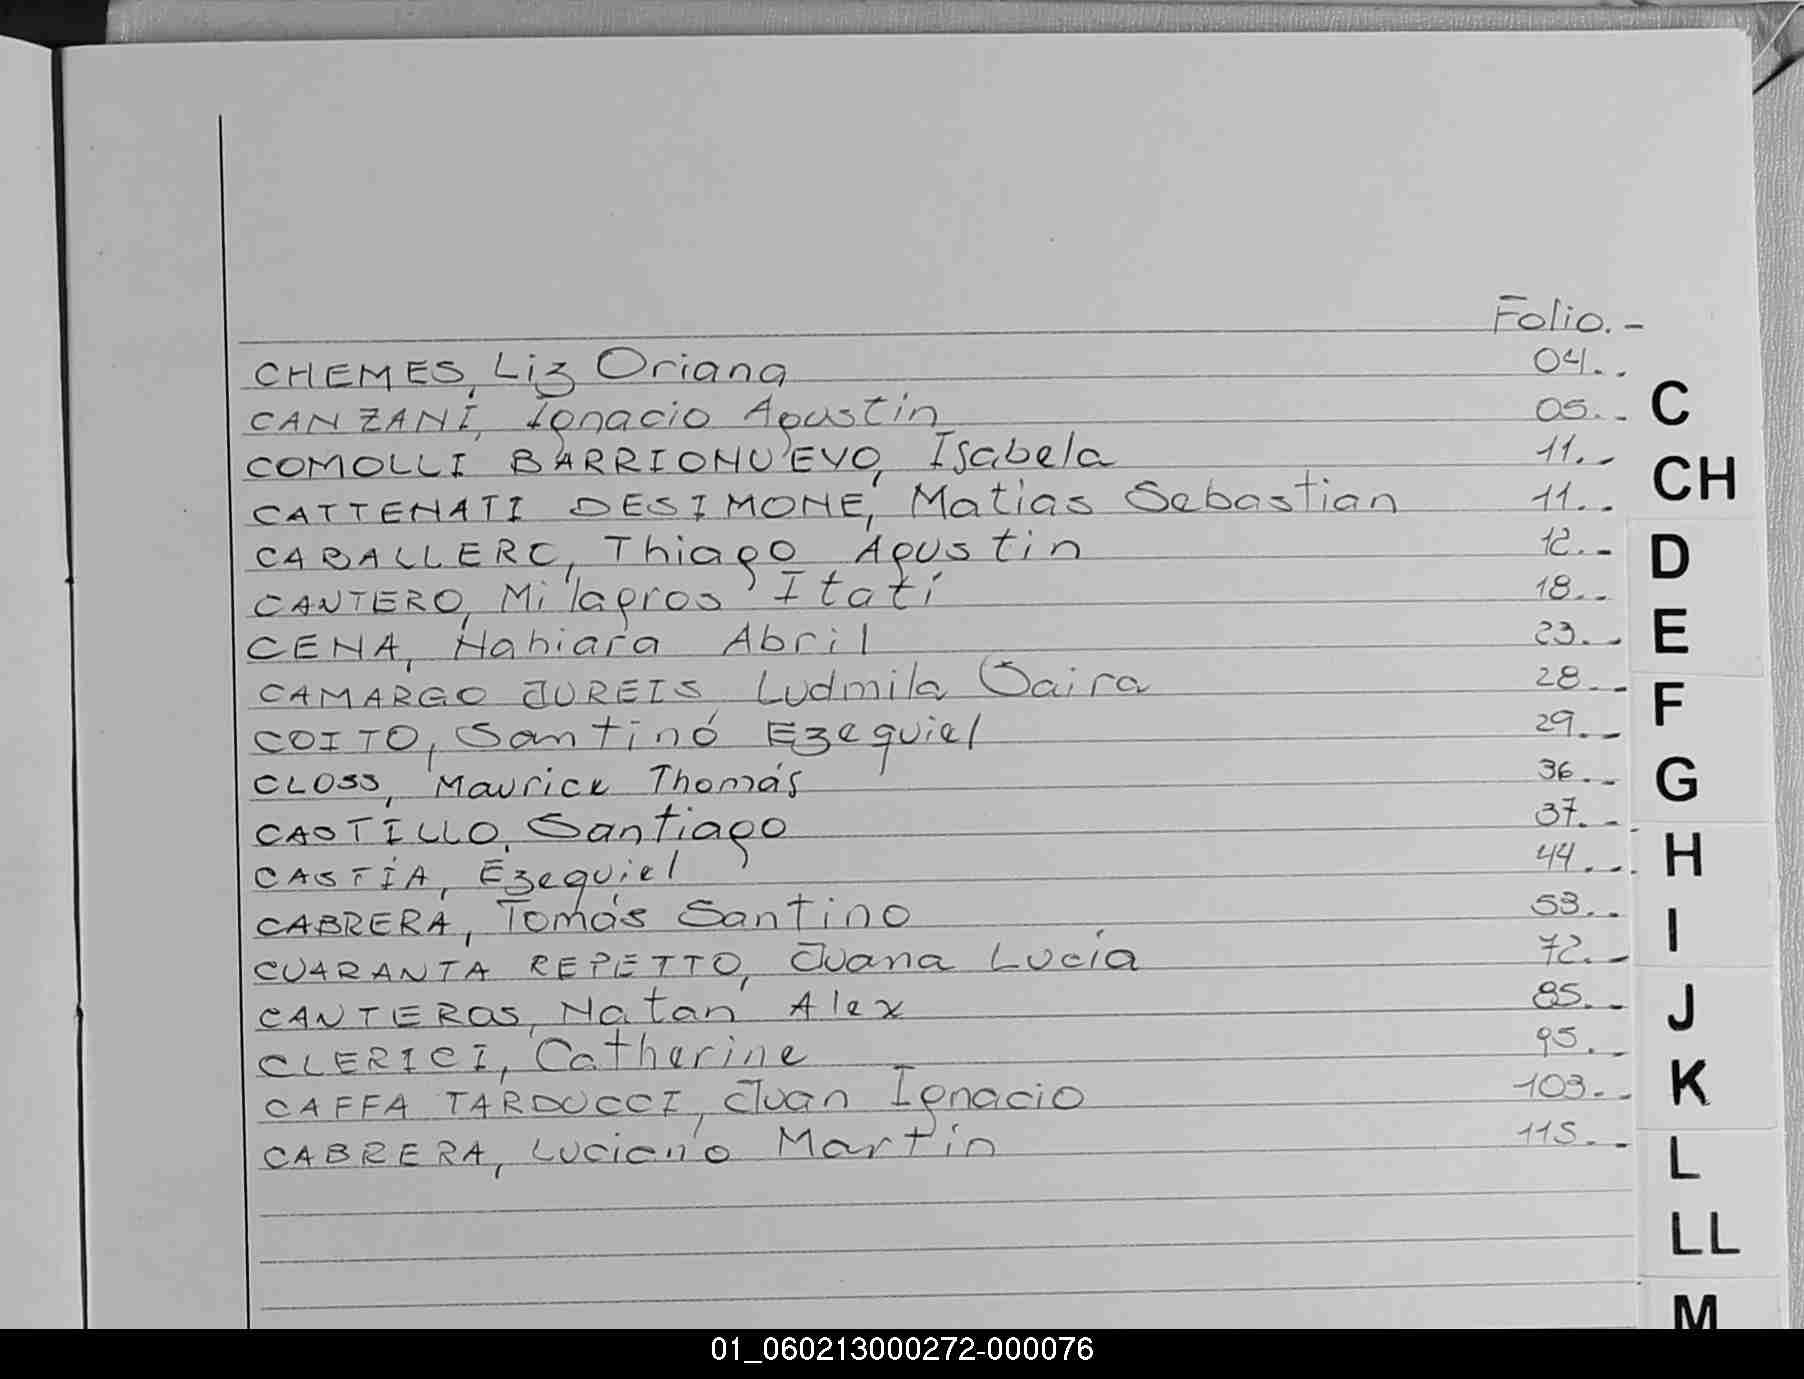 Folio.-
CHEMES, Liz Oriana 04.-
CANZANI, Ignacio Agustín 05.-
COMOLLI BARRIONUEVO, Isabela 11.-
CATTENATI DESIMONE, Matias Sebastian 11.-
CABALLERO, Thiago Agustin 12.-
CANTERO, Milagros Itatí 18.-
CENA, Nahiara Abril 23.-
CAMARGO JUREIS, Ludmila Saira 28.-
COITO, Santino Ezequiel 29.-
CLOSS, Maurice Thomás 36.-
CASTILLO, Santiago 37.-
CASTÍA, Ezequiel 44.-
CABRERA, Tomás Santino 53.-
CUARANTA REPETTO, Juana Lucía 72.-
CANTEROS, Natan Alex 85.-
CLERICI, Catherine 95.-
CAFFA TARDUCCI, Juan Ignacio 103.-
CABRERA, Luciano Martín 115.-
C
CH
D
E
F
G
H
I
J
K
L
LL
M
01_060213000272-000076